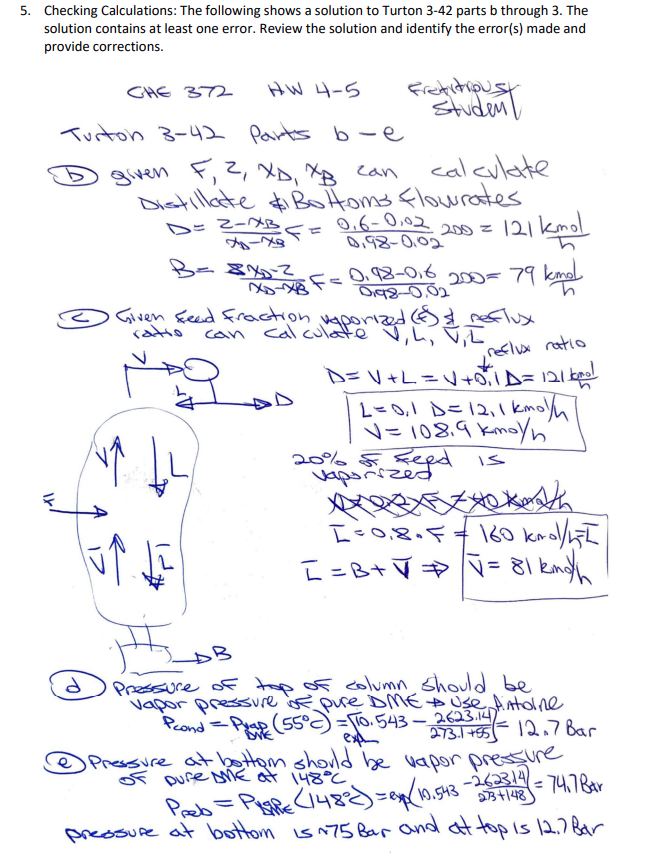 5. Checking Calculations: The following shows a solution to Turton 3-42 parts b through 3. The
solution contains at least one error. Review the solution and identify the error(s) made and
provide corrections.
CHE 372 HW 4-5
student
Turton 3-42 Parts b-e
(b) given F, Z, XD, XB can calculate
Distillate & Bottoms flowrates
D = (Z-XB)/(XD-XB) F = (0.6-0.02)/(0.98-0.02) 200 = 121 kmol/h
B = (XD-Z)/(XD-XB) F = (0.98-0.6)/(0.98-0.02) 200 = 79 kmol/h
(c) Given feed fraction vaporized (f) & reflux
ratio can calculate V, L, V̄, L̄
reflux ratio
V
L
D
D = V+L = V+0.1 D = 121 kmol/h
L = 0.1 D = 12.1 kmol/h
V = 108.9 kmol/h
V L
20% of feed is
vaporized
F
L̄ = 0.8.F = 160 kmol/h = L̄
V̄ L̄
L̄ = B + V̄ ⇒ V̄ = 81 kmol/h
B
(d) Pressure of top of column should be
vapor pressure of pure DME → Use Antoine
Pcond = Pvap DME (55°C) = exp[10.543 - 2623.14/(273.1+55)] = 12.7 Bar
(e) Pressure at bottom should be vapor pressure
of pure DME at 148°C
Preb = (148°C) = exp(10.543 - 2623.14/(273+148)) = 74.7 Bar
pressure at bottom is ~75 Bar and at top is 12.7 Bar